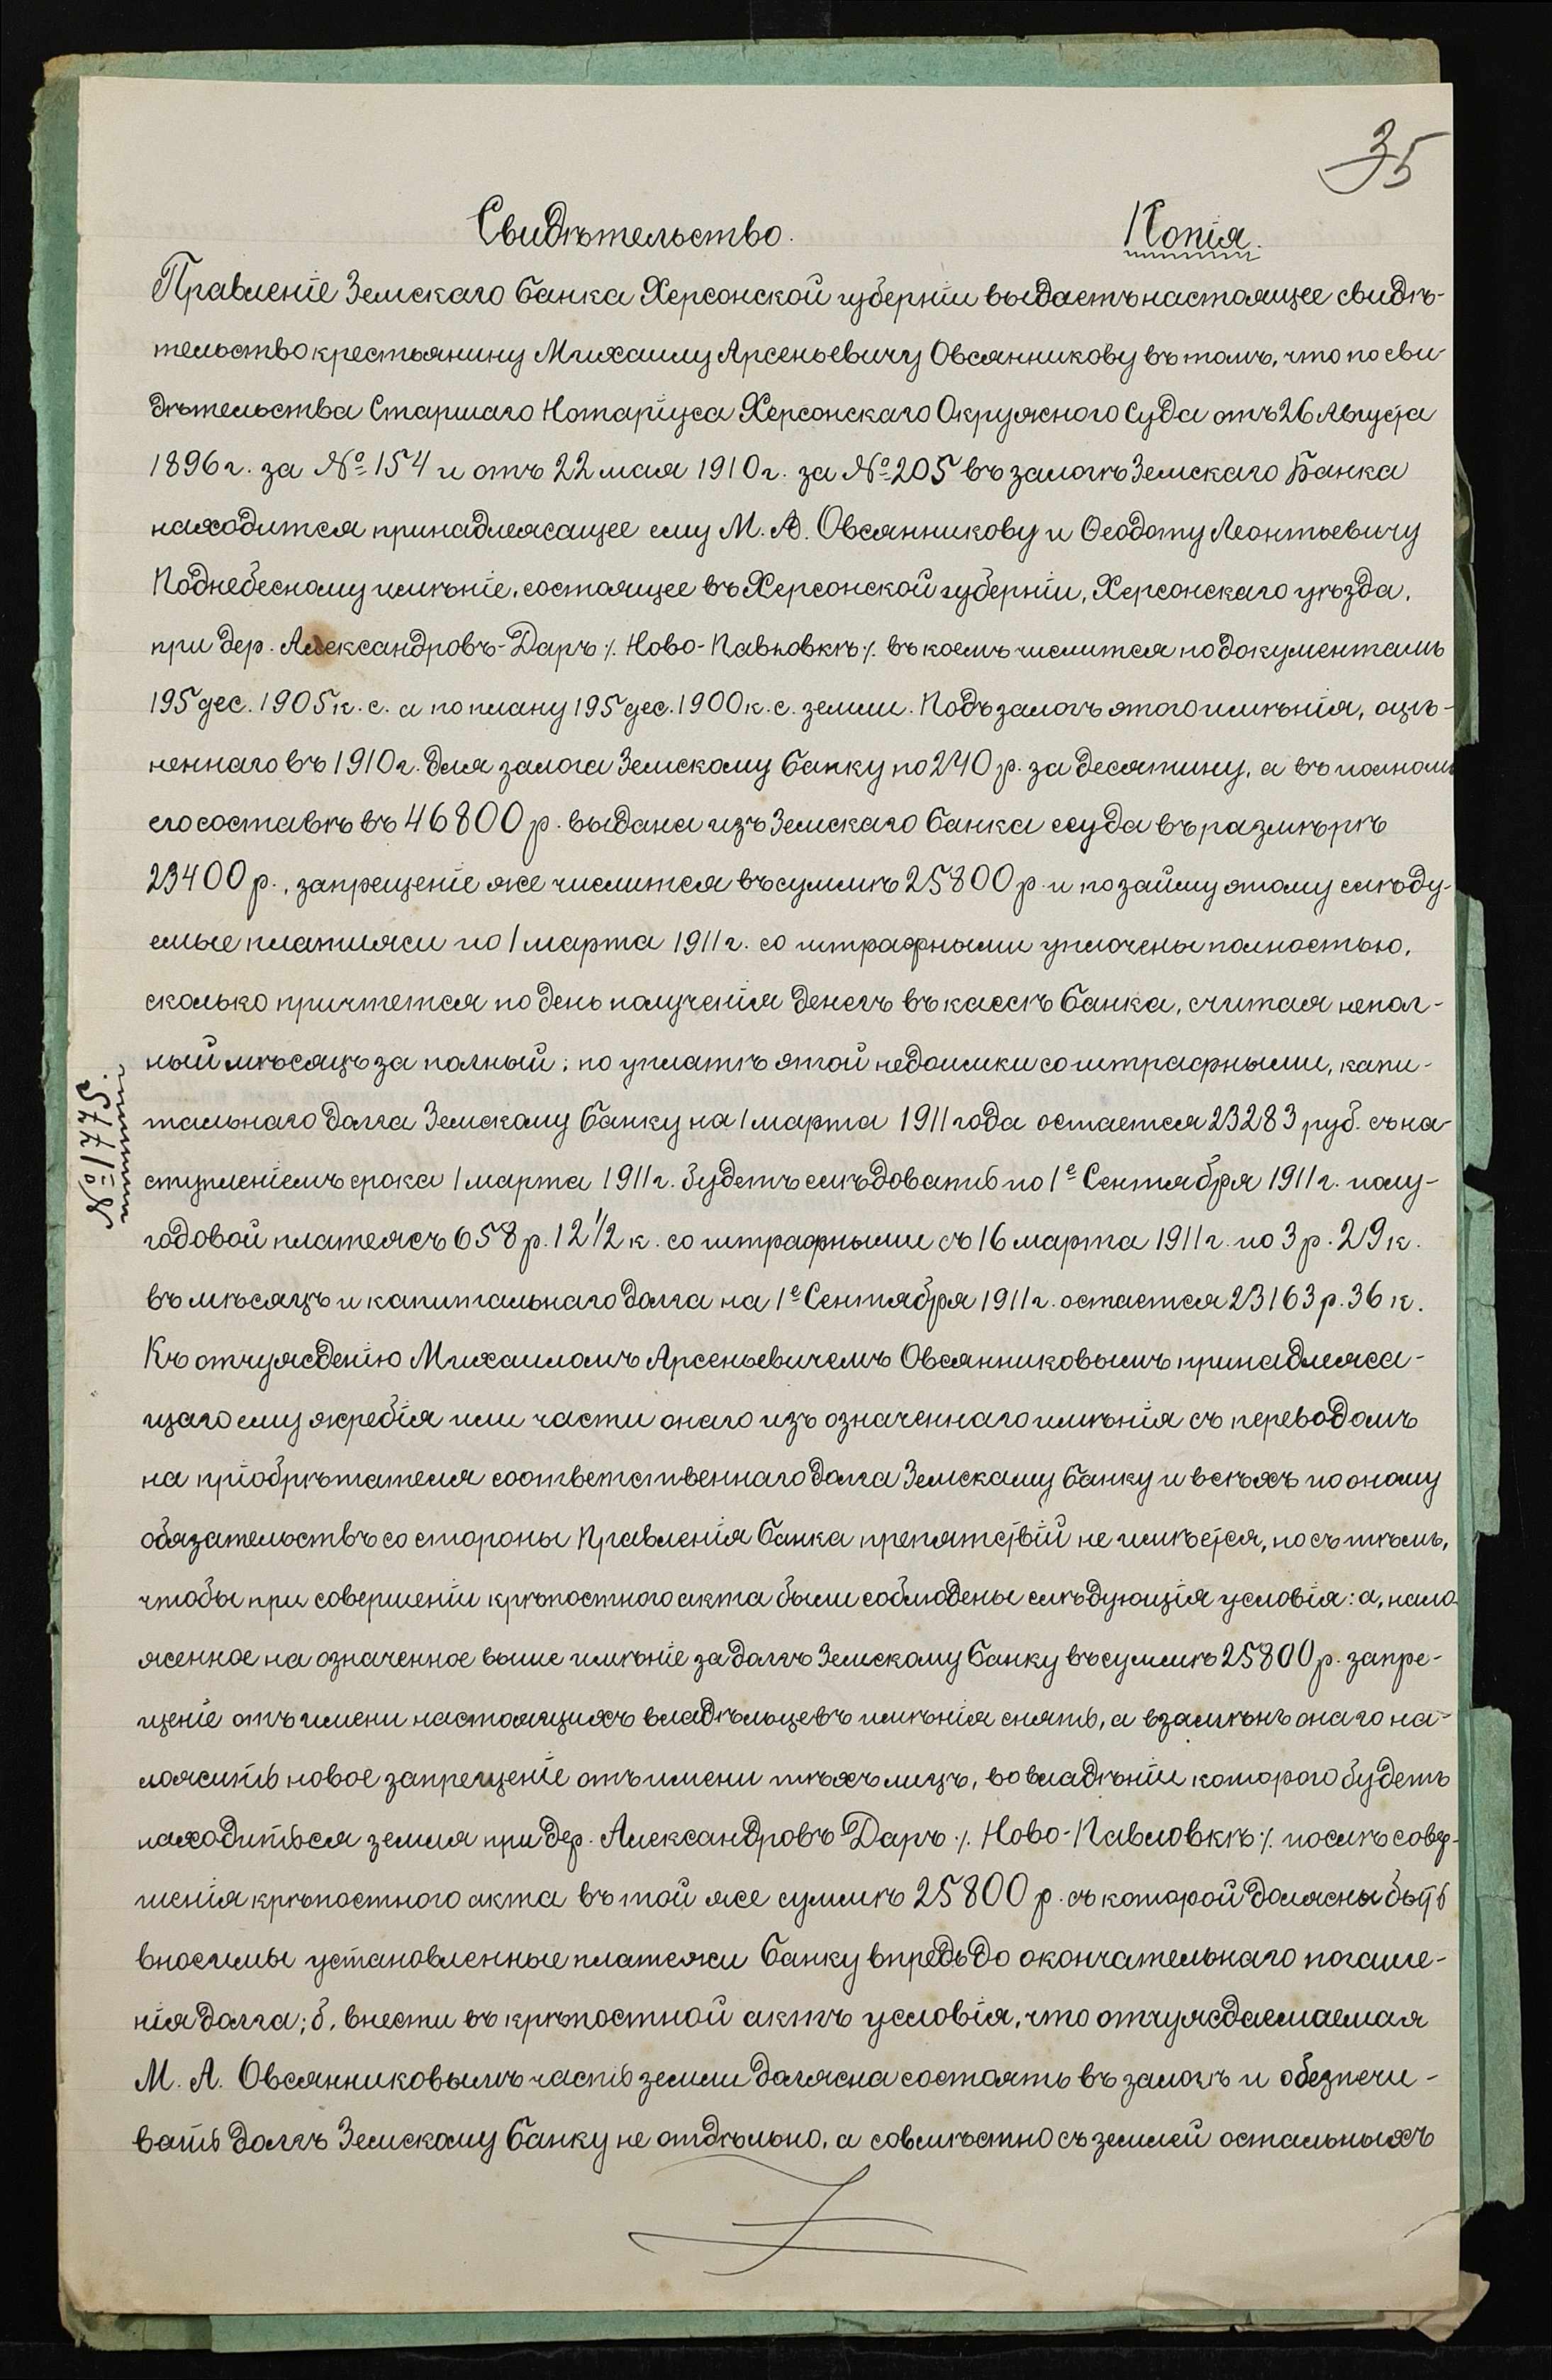 35
Свидѣтельство. Копія.
Правленіе Земскаго банка Херсонской губерніи выдаетъ настоящее свидѣ-
тельство крестьянину Михаилу Арсеньевичу Овсянникову въ томъ, что по сви-
дѣтельства Старшаго Нотаріуса Херсонскаго Окружного Суда отъ 26 Августа
1896 г. за № 154 и отъ 22 мая 1910 г. за № 205 въ залогѣ Земскаго Банка
находится принадлежащее ему М. А. Овсянникову и Ѳеодоту Леонтьевичу
Поднебесному имѣніе, состоящее въ Херсонской губерніи, Херсонскаго уѣзда,
при дер. Александровъ-Даръ ٪ Ново-Павловкѣ ٪ въ коемъ числится по документамъ
195 дес. 1905 к. с. а по плану 195 дес. 1900 к. с. земли. Подъ залогъ этого имѣнія, оцѣ-
неннаго въ 1910 г. для залога Земскому банку по 240 р. за десятину, а въ полномъ
его составѣ въ 46800 р. выдана изъ Земскаго банка ссуда въ размѣрѣ
23400 р., запрещеніе же числится въ суммѣ 25800 р. и по займу этому слѣду-
емые платежи по 1 марта 1911 г. со штрафными уплочены полностью,
сколько причтется по день полученія денегъ въ кассѣ банка, считая непол-
ный мѣсяцъ за полный; по уплатѣ этой недоимки со штрафными, капи-
тальнаго долга Земскому банку на 1 марта 1911 года остается 23283 руб. съ на-
ступленіемъ срока 1 марта 1911 г. будетъ слѣдовать по 1е Сентября 1911 г. полу-
годовой платежъ 658 р. 12 1/2 к. со штрафными съ 16 марта 1911 г. по 3 р. 29 к.
въ мѣсяцъ и капитальнаго долга на 1е Сентября 1911 г. остается 23163 р. 36 к.
Къ отчужденію Михаиломъ Арсеньевичемъ Овсянниковымъ принадлежа-
щаго ему жребія или части онаго изъ означеннаго имѣнія съ переводомъ
на пріобрѣтателя соответственнаго долга Земскому банку и всѣхъ по оному
обязательствъ со стороны Правленія банка препятствій не имѣется, но съ тѣмъ,
чтобы при совершеніи крѣпостного акта были соблюдены слѣдующія условія: а, нало-
женное на означенное выше имѣніе за долгъ Земскому банку въ суммѣ 25800 р. запре-
щеніе отъ имени настоящихъ владѣльцевъ имѣнія снять, а взамѣнъ онаго на-
ложить новое запрещеніе отъ имени тѣхъ лицъ, во владѣніи которого будетъ
находиться земля при дер. Александровъ Даръ ٪ Ново-Павловкѣ ٪ послѣ совер-
шенія крѣпостного акта въ той же суммѣ 25800 р. съ которой должны быть
вносимы установленные платежи банку впредь до окончательнаго погаше-
нія долга; б, внести въ крѣпостной актъ условія, что отчуждаемаемая
М. А. Овсянниковымъ часть земли должна состоять въ залогѣ и обезпечи-
вать долгъ Земскому банку не отдѣльно, а совмѣстно съ землей остальныхъ
№ 1775.